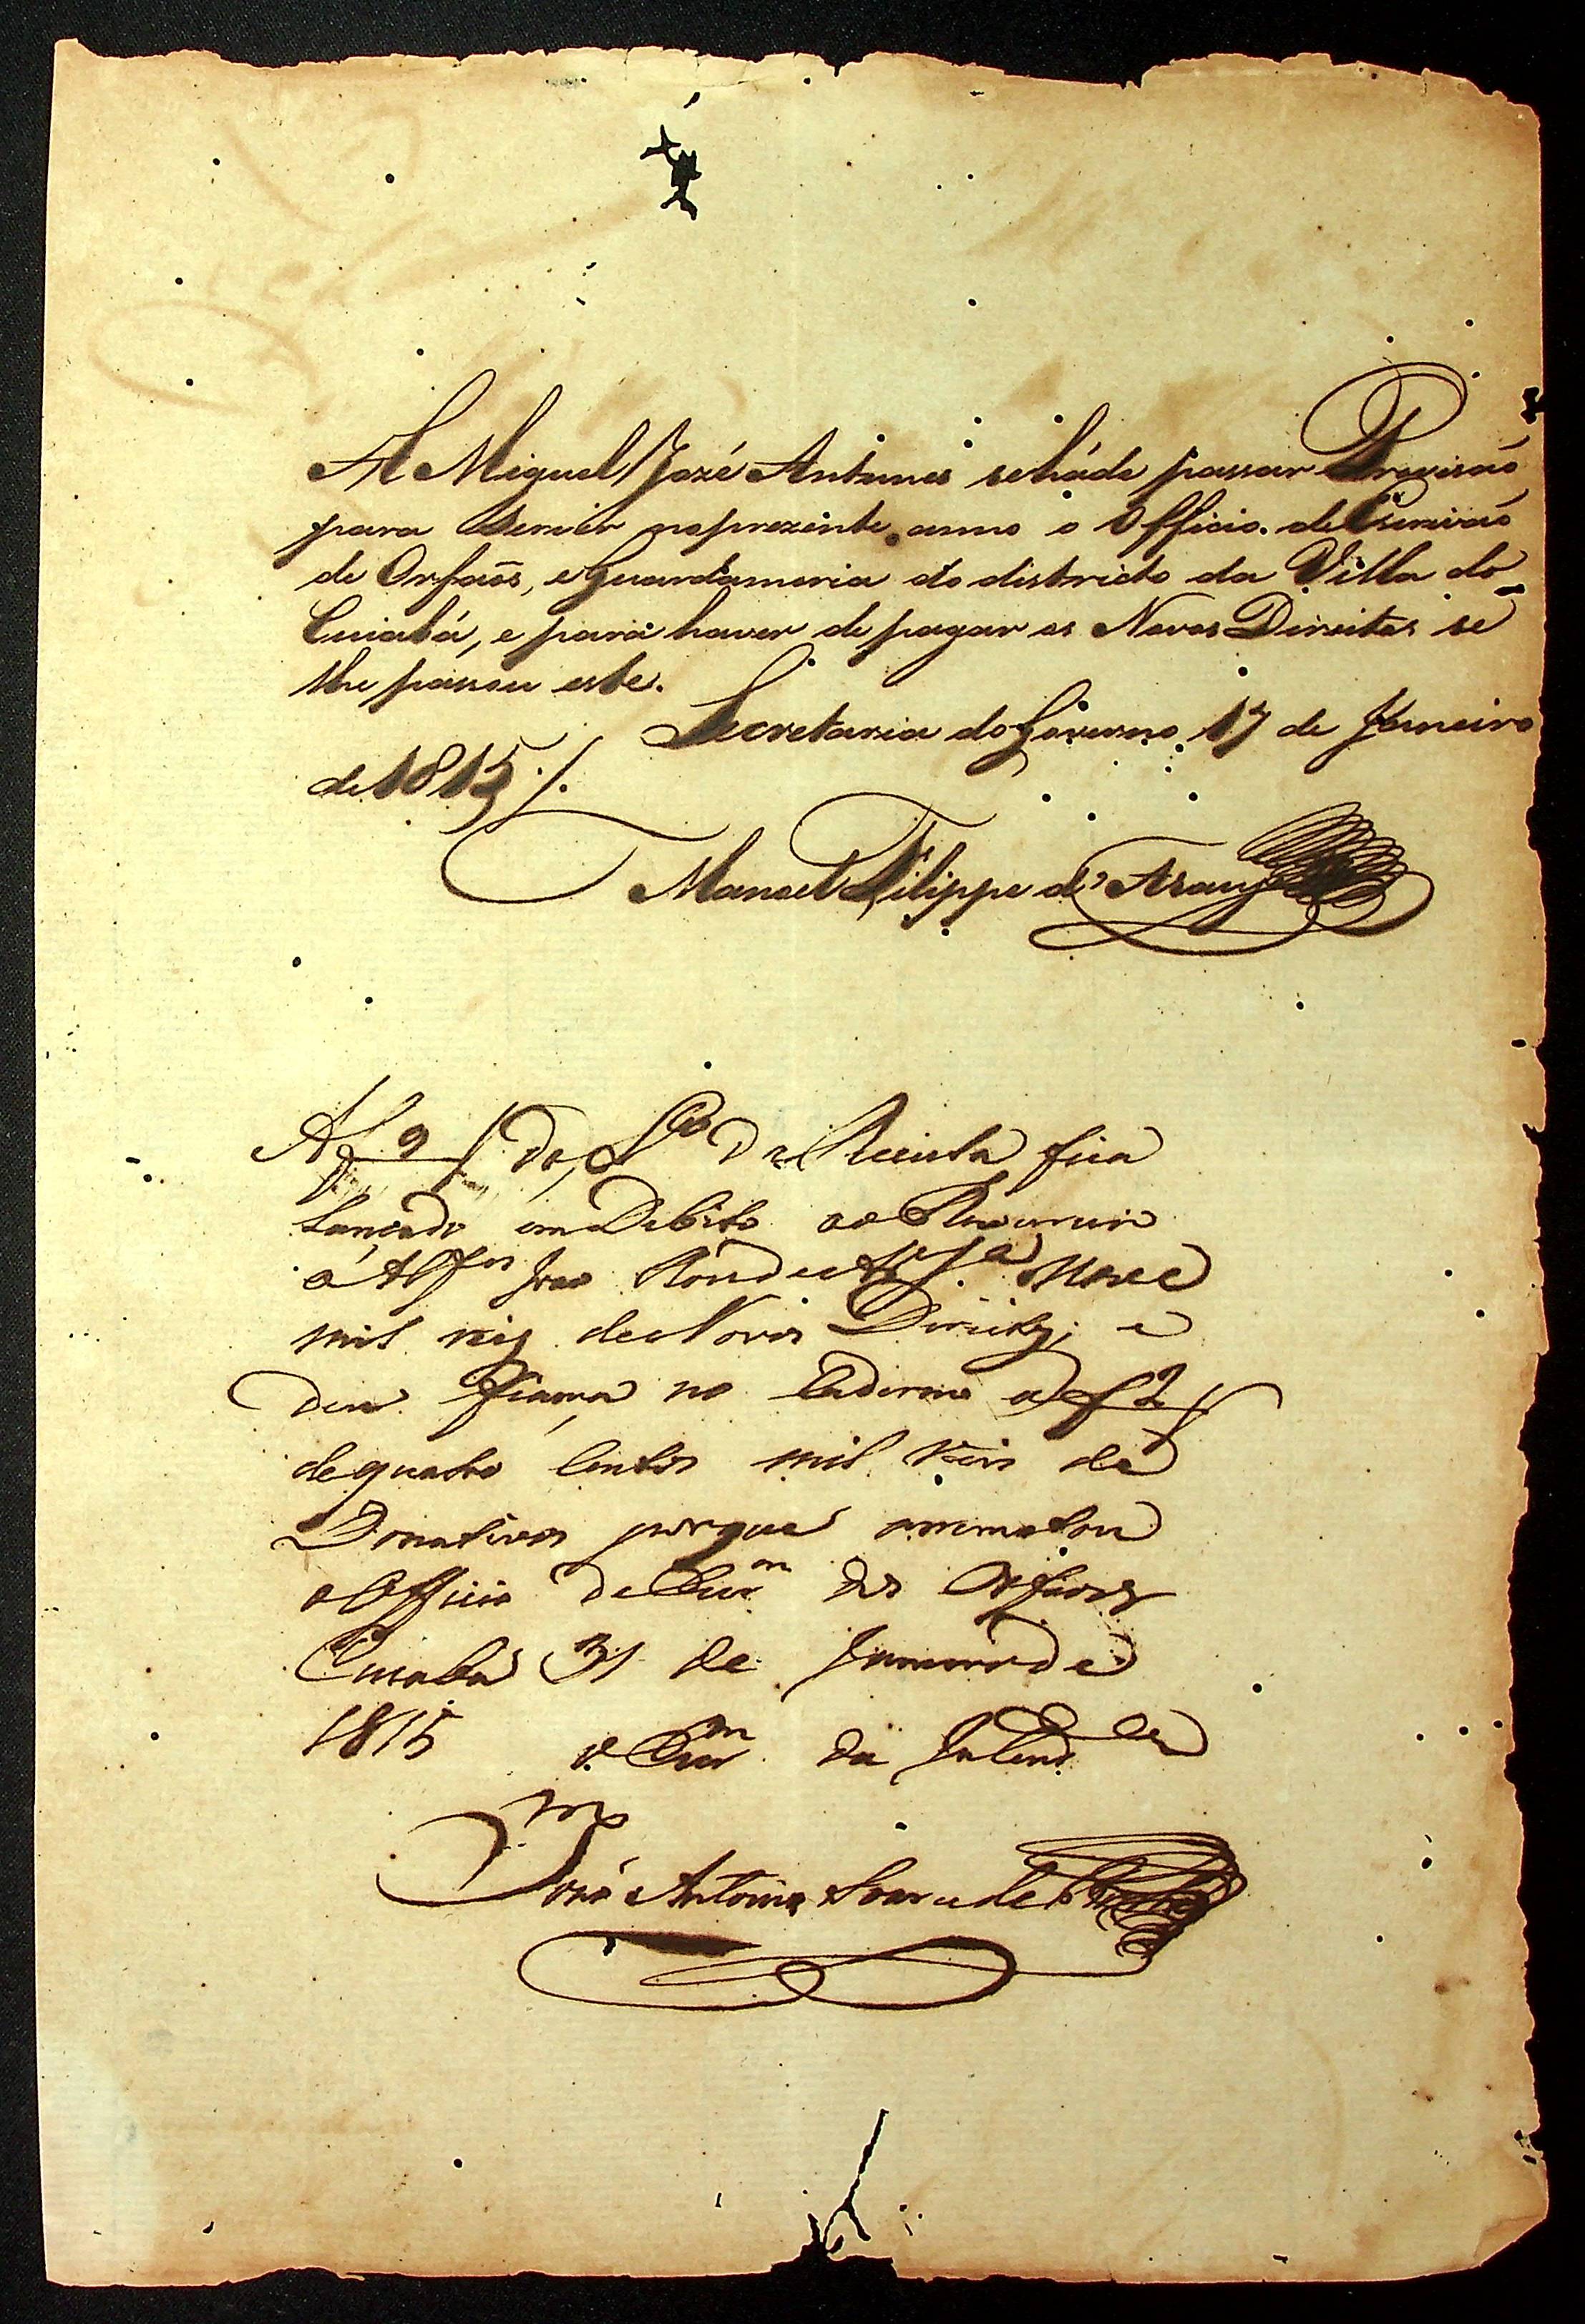 A Miguel Jozé Antunes seháde passar Provisaõ
para servir noprezente anno o Officio de Escrivaõ
de Orfaõs, eguardamoria do districto da Villa do
Cuiabá, e para haver de pagar os Novos Direitos se
lhe passou este.
Secretaria do Governo 17 de Janeiro
de 1815./.
Manoel Filippe d'Araujo
Af 9 do L.º da Receita fica
Lançado em Debito ao
o Alf.es Joao nove
mil reis de Novos Direitos; e
deu fiança no Caderno a f 2
dequatro Centos mil reis de
Donativos porque arrematou
o Officio de Escr.am dos Orfaons
Cuiabá 31 de Janeiro de
1815 o Escr.am da Intend.ca
José Antonio Soares de